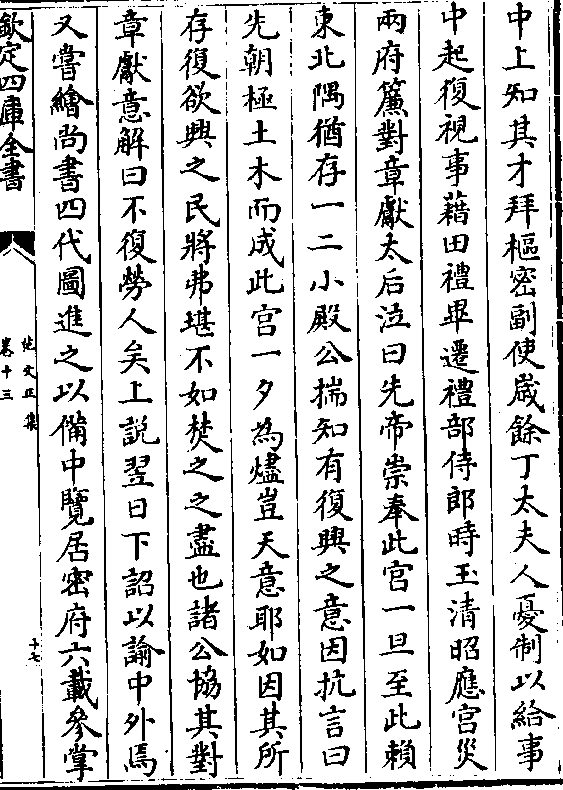 中上知其才拜樞密副使歲餘丁太夫人憂制以給事
中起復視事藉田禮畢遷禮部侍郎時玉清昭應宫災
兩府簾對章獻太后泣曰先帝崇奉此宫一旦至此賴
東北隅猶存一二小殿公揣知有復興之意因抗言曰
先朝極土木而成此宫一夕為燼豈天意耶如因其所
存復欲興之民將弗堪不如焚之之盡也諸公協其對
章獻意解曰不復勞人矣上説翌日下詔以諭中外焉
又嘗繪尚書四代圖進之以備中覽居密府六載參掌
欽定四庫全書
范文正集
卷十三
十七